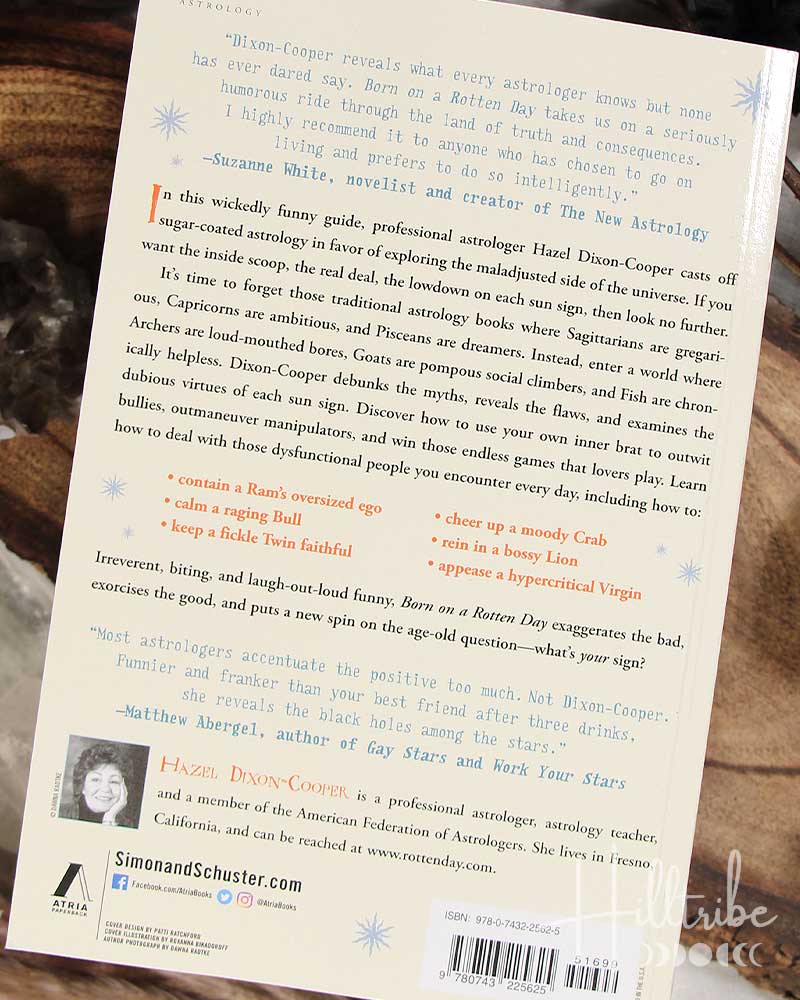 ASTROLOGY
“Dixon-Cooper reveals what every astrologer knows but none
has ever dared say. Born on a Rotten Day takes us on a seriously
humorous ride through the land of truth and consequences.
I highly recommend it to anyone who has chosen to go on
living and prefers to do so intelligently.”
—Suzanne White, novelist and creator of The New Astrology
In this wickedly funny guide, professional astrologer Hazel Dixon-Cooper casts off
sugar-coated astrology in favor of exploring the maladjusted side of the universe. If you
want the inside scoop, the real deal, the lowdown on each sun sign, then look no further.
It’s time to forget those traditional astrology books where Sagittarians are gregari-
ous, Capricorns are ambitious, and Pisceans are dreamers. Instead, enter a world where
Archers are loud-mouthed bores, Goats are pompous social climbers, and Fish are chron-
ically helpless. Dixon-Cooper debunks the myths, reveals the flaws, and examines the
dubious virtues of each sun sign. Discover how to use your own inner brat to outwit
bullies, outmaneuver manipulators, and win those endless games that lovers play. Learn
how to deal with those dysfunctional people you encounter every day, including how to:
• contain a Ram’s oversized ego
• calm a raging Bull
• keep a fickle Twin faithful
• cheer up a moody Crab
• rein in a bossy Lion
• appease a hypercritical Virgin
Irreverent, biting, and laugh-out-loud funny, Born on a Rotten Day exaggerates the bad,
exorcises the good, and puts a new spin on the age-old question—what’s your sign?
“Most astrologers accentuate the positive too much. Not Dixon-Cooper.
Funnier and franker than your best friend after three drinks,
she reveals the black holes among the stars.”
—Matthew Abergel, author of Gay Stars and Work Your Stars
© DAWNA RADTKE
HAZEL DIXON-COOPER is a professional astrologer, astrology teacher,
and a member of the American Federation of Astrologers. She lives in Fresno,
California, and can be reached at www.rottenday.com.
ATRIA
PAPERBACK
SimonandSchuster.com
Facebook.com/AtriaBooks @AtriaBooks
COVER DESIGN BY PATTI RATCHFORD
COVER ILLUSTRATION BY ROXANNA BIKADOROFF
AUTHOR PHOTOGRAPH BY DAWNA RADTKE
ISBN: 978-0-7432-2562-5
51699
9 780743 225625
Hilltribe